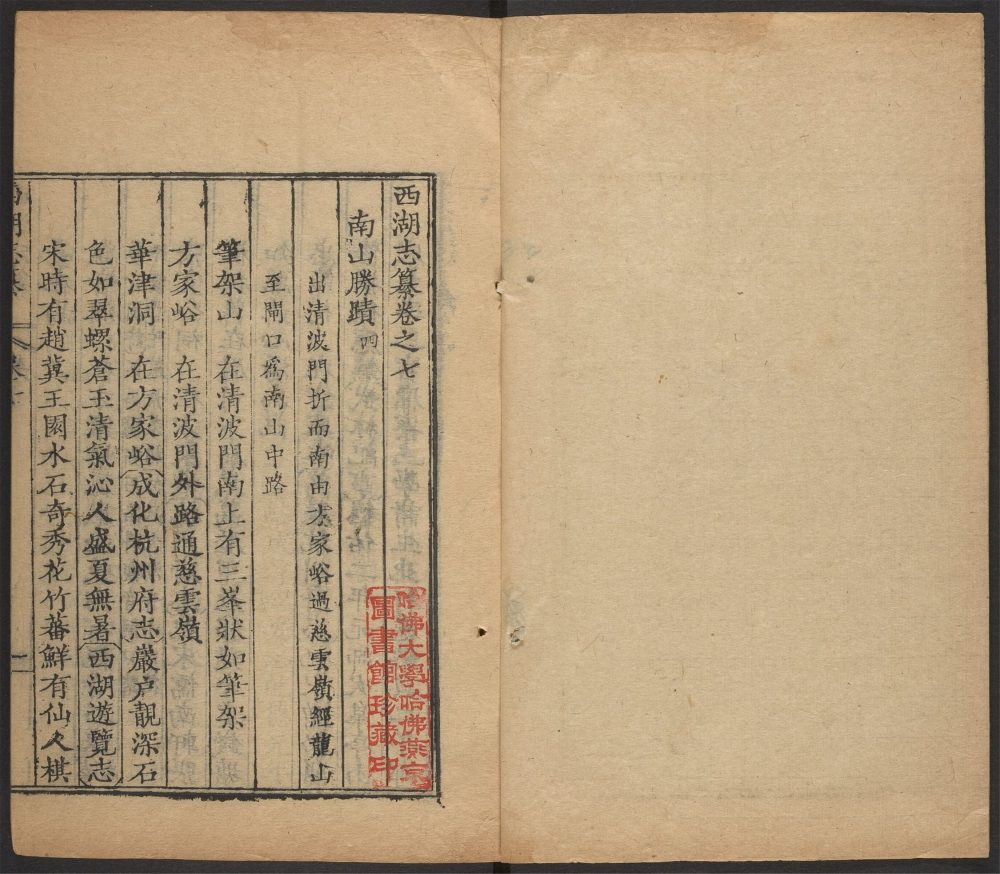 西湖志纂卷之七
南山勝蹟四
出清波門折而南由方家峪過慈雲嶺經龍山
至閘口爲南山中路
筆架山 在清波門南上有三峯狀如筆架
方家峪 在清波門外路通慈雲嶺
華津洞 在方家峪成化杭州府志巖户靚深石
色如翠螺蒼玉清氣沁人盛夏無暑西湖遊覽志
宋時有趙冀王園水石奇秀花竹蕃鮮有仙人棋
西湖志纂 卷七 一
哈佛大學哈佛燕京
圖書館珍藏印